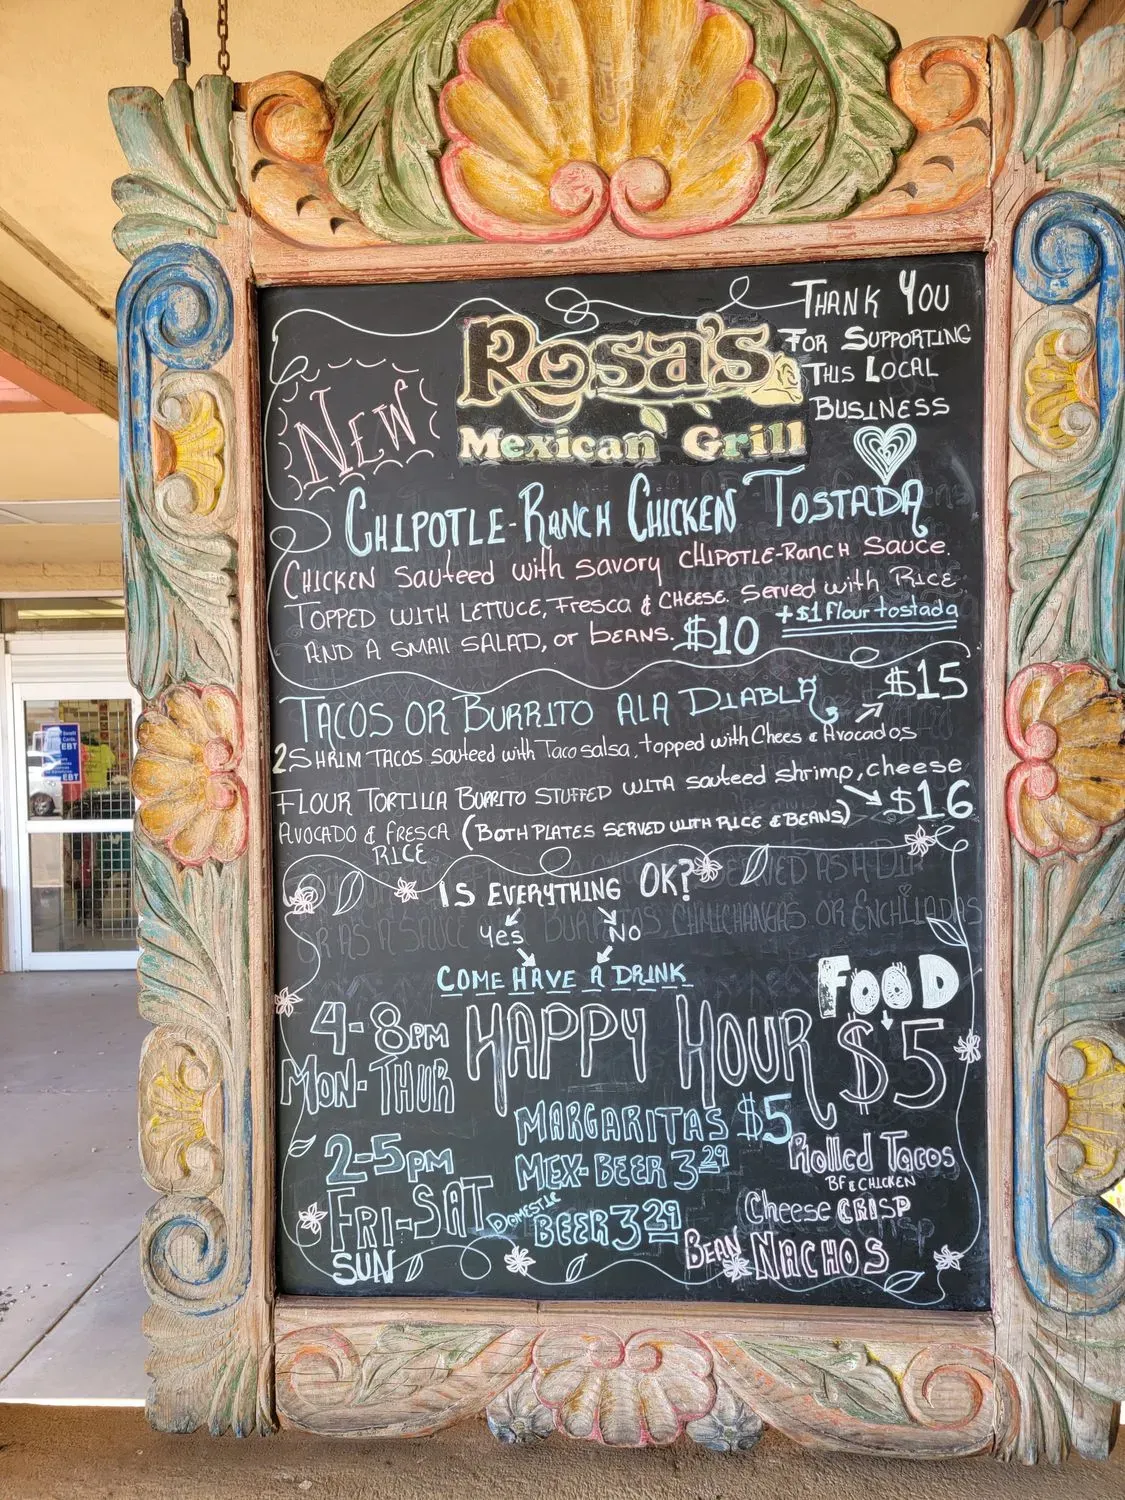 THANK YOU
FOR SUPPORTING
THIS LOCAL
BUSINESS
Rosa's
Mexican Grill
NEW
CHIPOTLE-RANCH CHICKEN TOSTADA
CHICKEN Sauteed with savory CHIPOTLE-RANCH Sauce.
TOPPED WITH LETTUCE, Fresca & CHEESE. Served with RICE
AND A SMALL SALAD, or beans. $10 +$1 Flour tostada
TACOS OR BURRITO ALA DIABLA $15
2 SHRIM TACOS sauteed with Taco salsa, topped with Chees & Avocados
FLOUR TORTILLA BURRITO STUFFED WITH sauteed shrimp, cheese
AVOCADO & FRESCA (BOTH PLATES SERVED WITH RICE & BEANS) $16
RICE
IS EVERYTHING OK?
Yes No
COME HAVE A DRINK
FOOD
4-8PM HAPPY HOUR $5
MON-THUR
MARGARITAS $5
2-5PM MEX-BEER 3 29 Rolled Tacos
BF & CHICKEN
FRI-SAT DOMESTIC BEER 3 29 Cheese CRISP
SUN BEAN NACHOS
EBT
EBT